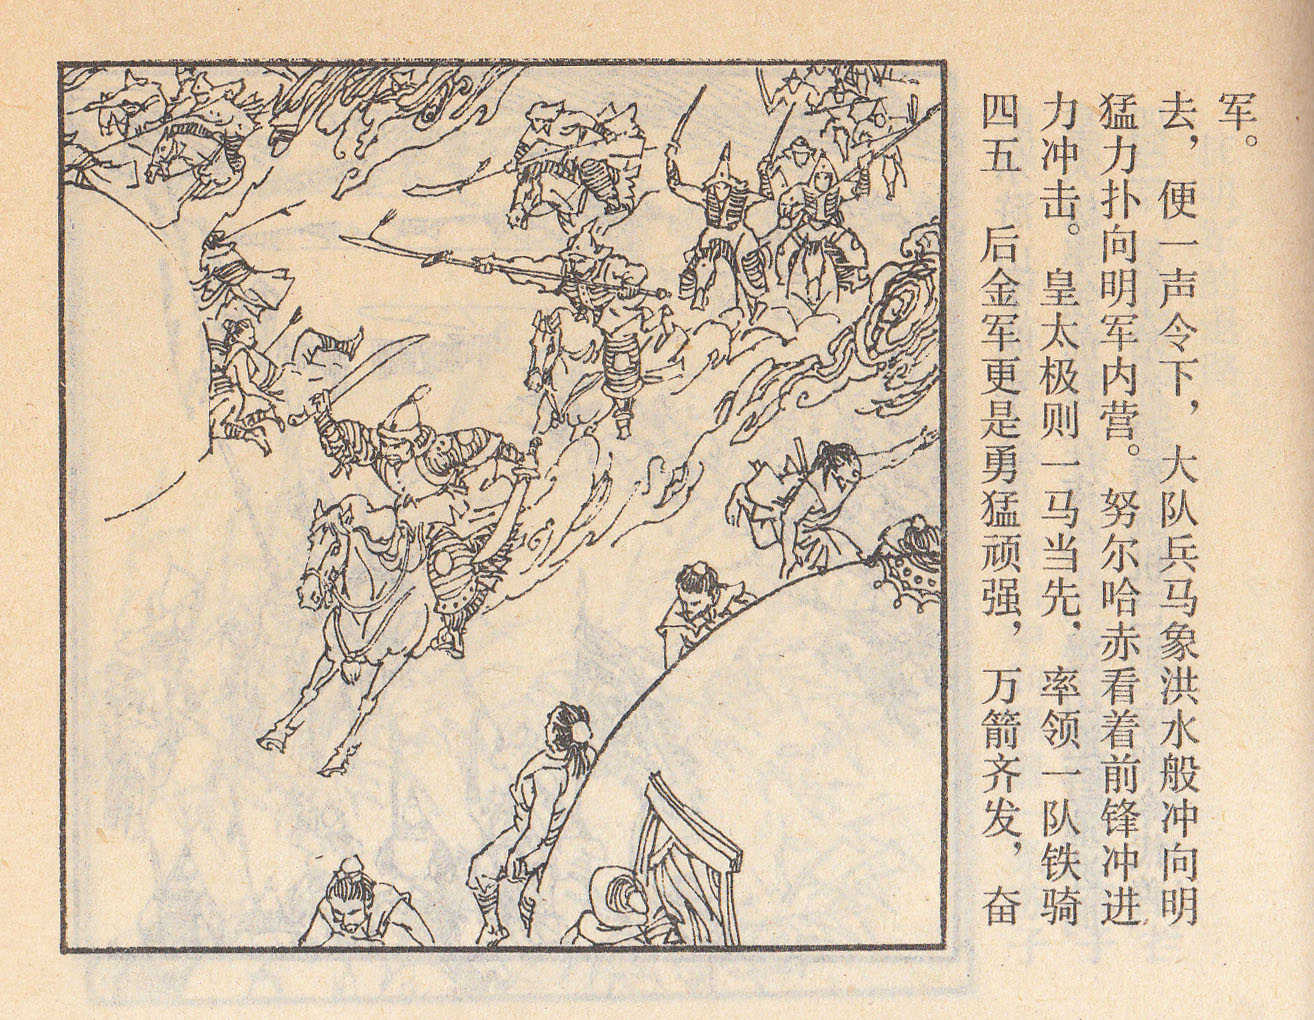 四五 后金军更是勇猛顽强，万箭齐发，奋
力冲击。皇太极则一马当先，率领一队铁骑
猛力扑向明军内营。努尔哈赤看着前锋冲进
去，便一声令下，大队兵马象洪水般冲向明
军。